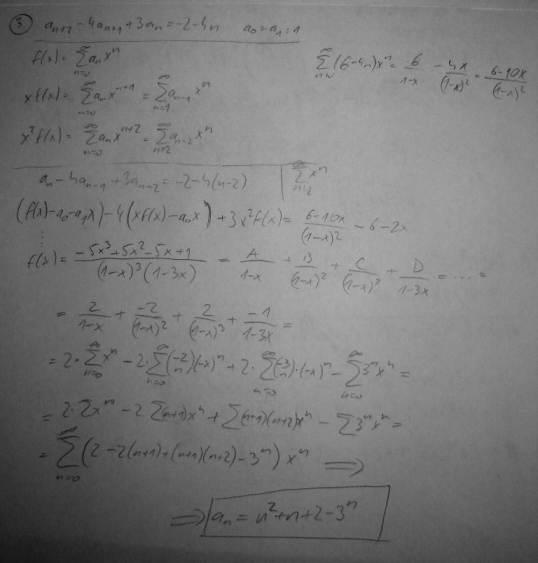 ③ a_{n+2} - 4a_{n+1} + 3a_n = -2 - 4n   a_0 = a_1 = 1
f(x) = ∑_{n=0}^∞ a_n x^n
∑_{n=0}^∞ (6-4n)x^n = 6/(1-x) - 4x/(1-x)^2 = (6-10x)/(1-x)^2
x f(x) = ∑_{n=0}^∞ a_n x^{n+1} = ∑_{n=1}^∞ a_{n-1} x^n
x^2 f(x) = ∑_{n=0}^∞ a_n x^{n+2} = ∑_{n=2}^∞ a_{n-2} x^n
a_n - 4a_{n-1} + 3a_{n-2} = -2 - 4(n-2)   | ∑_{n=2}^∞ x^n
(f(x) - a_0 - a_1 x) - 4(x f(x) - a_0 x) + 3x^2 f(x) = (6-10x)/(1-x)^2 - 6 - 2x
⋮
f(x) = (-5x^3 + 5x^2 - 5x + 1)/((1-x)^3 (1-3x)) = A/(1-x) + B/(1-x)^2 + C/(1-x)^3 + D/(1-3x) = .... =
= 2/(1-x) + -2/(1-x)^2 + 2/(1-x)^3 + -1/(1-3x) =
= 2·∑_{n=0}^∞ x^n - 2·∑_{n=0}^∞ (-2 n)(-x)^n + 2·∑_{n=0}^∞ (-3 n)·(-x)^n - ∑_{n=0}^∞ 3^n x^n =
= 2·∑x^n - 2 ∑(n+1)x^n + ∑(n+1)(n+2)x^n - ∑3^n x^n =
= ∑_{n=0}^∞ (2 - 2(n+1) + (n+1)(n+2) - 3^n) x^n ⟹
⟹ a_n = n^2 + n + 2 - 3^n